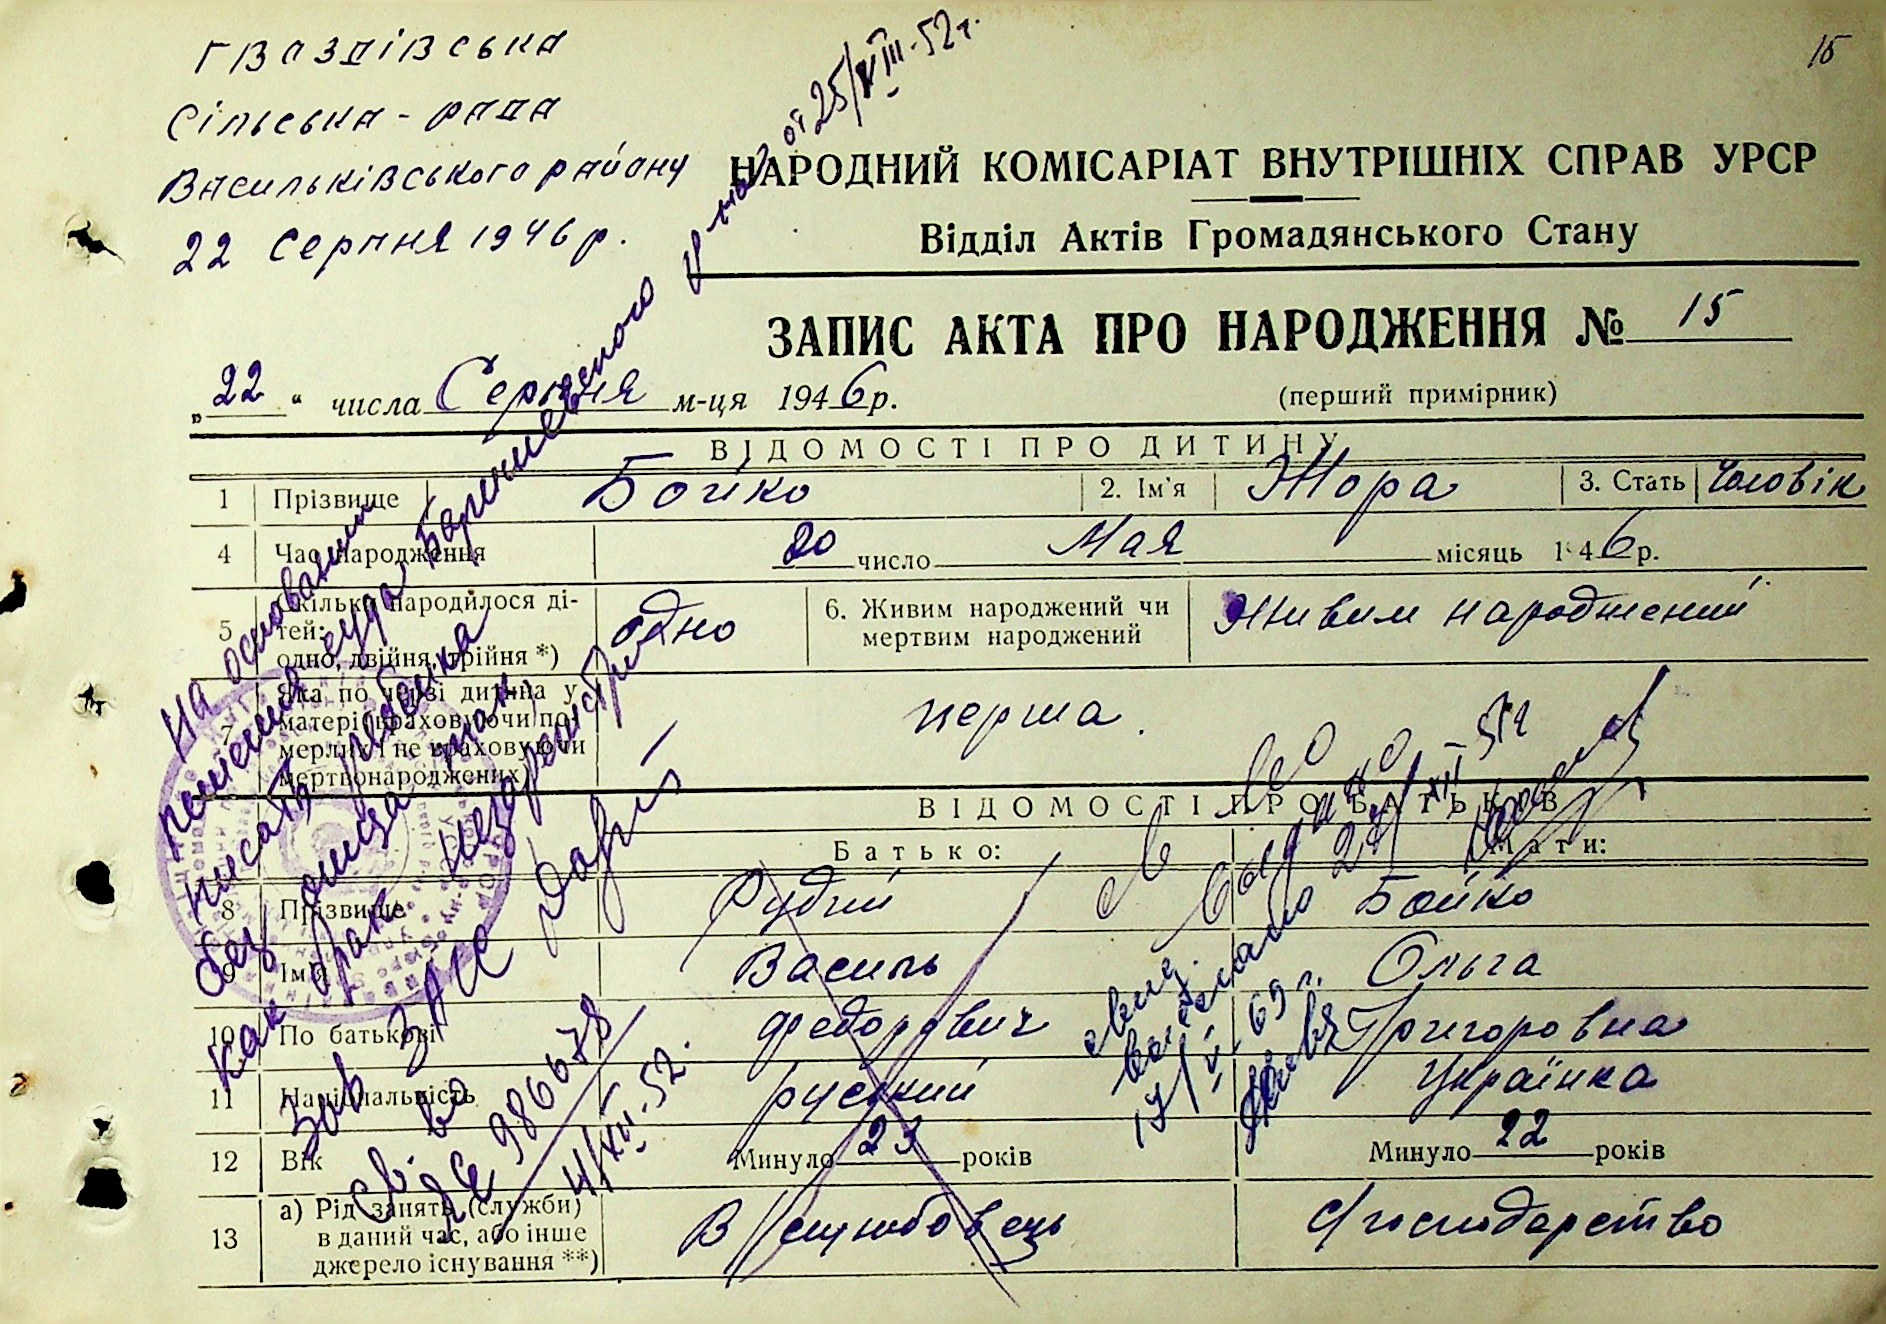 15
Гвоздівська
Сільська-рада
Васильківського району
22 Серпня 1946 р.
НАРОДНИЙ КОМІСАРІАТ ВНУТРІШНІХ СПРАВ УРСР
Відділ Актів Громадянського Стану
ЗАПИС АКТА ПРО НАРОДЖЕННЯ № 15
„22“ числа Серпня м-ця 1946 р.
(перший примірник)
ВІДОМОСТІ ПРО ДИТИНУ
1 Прізвище Бойко 2. Ім'я Жора 3. Стать Чоловік
4 Час народження 20 число Мая місяць 1946 р.
5 Скільки народилося ді-
тей:
одно, двійня, трійня *)
одно
6. Живим народжений чи
мертвим народжений
Живим народжений
7 Яка по черзі дитина у
матері (враховуючи по-
мерлих і не враховуючи
мертвонароджених)
перша.
ВІДОМОСТІ ПРО БАТЬКІВ
Батько: Мати:
8 Прізвище Рудий Бойко
9 Ім'я Василь Ольга
10 По батькові Федорович Григоровна
11 Національність руський Українка
12 Вік Минуло 23 років Минуло 22 років
13 а) Рід занять (служби)
в даний час, або інше
джерело існування **)
В/службовець С/господарство
На основании
решения суда Барышевского р-на от 25/VIII-52 г.
писать ребенка
без отца так
как брак незарегистри
Зав ЗАГС
св-во
986678
4/XII-52.
17/V 69 г.